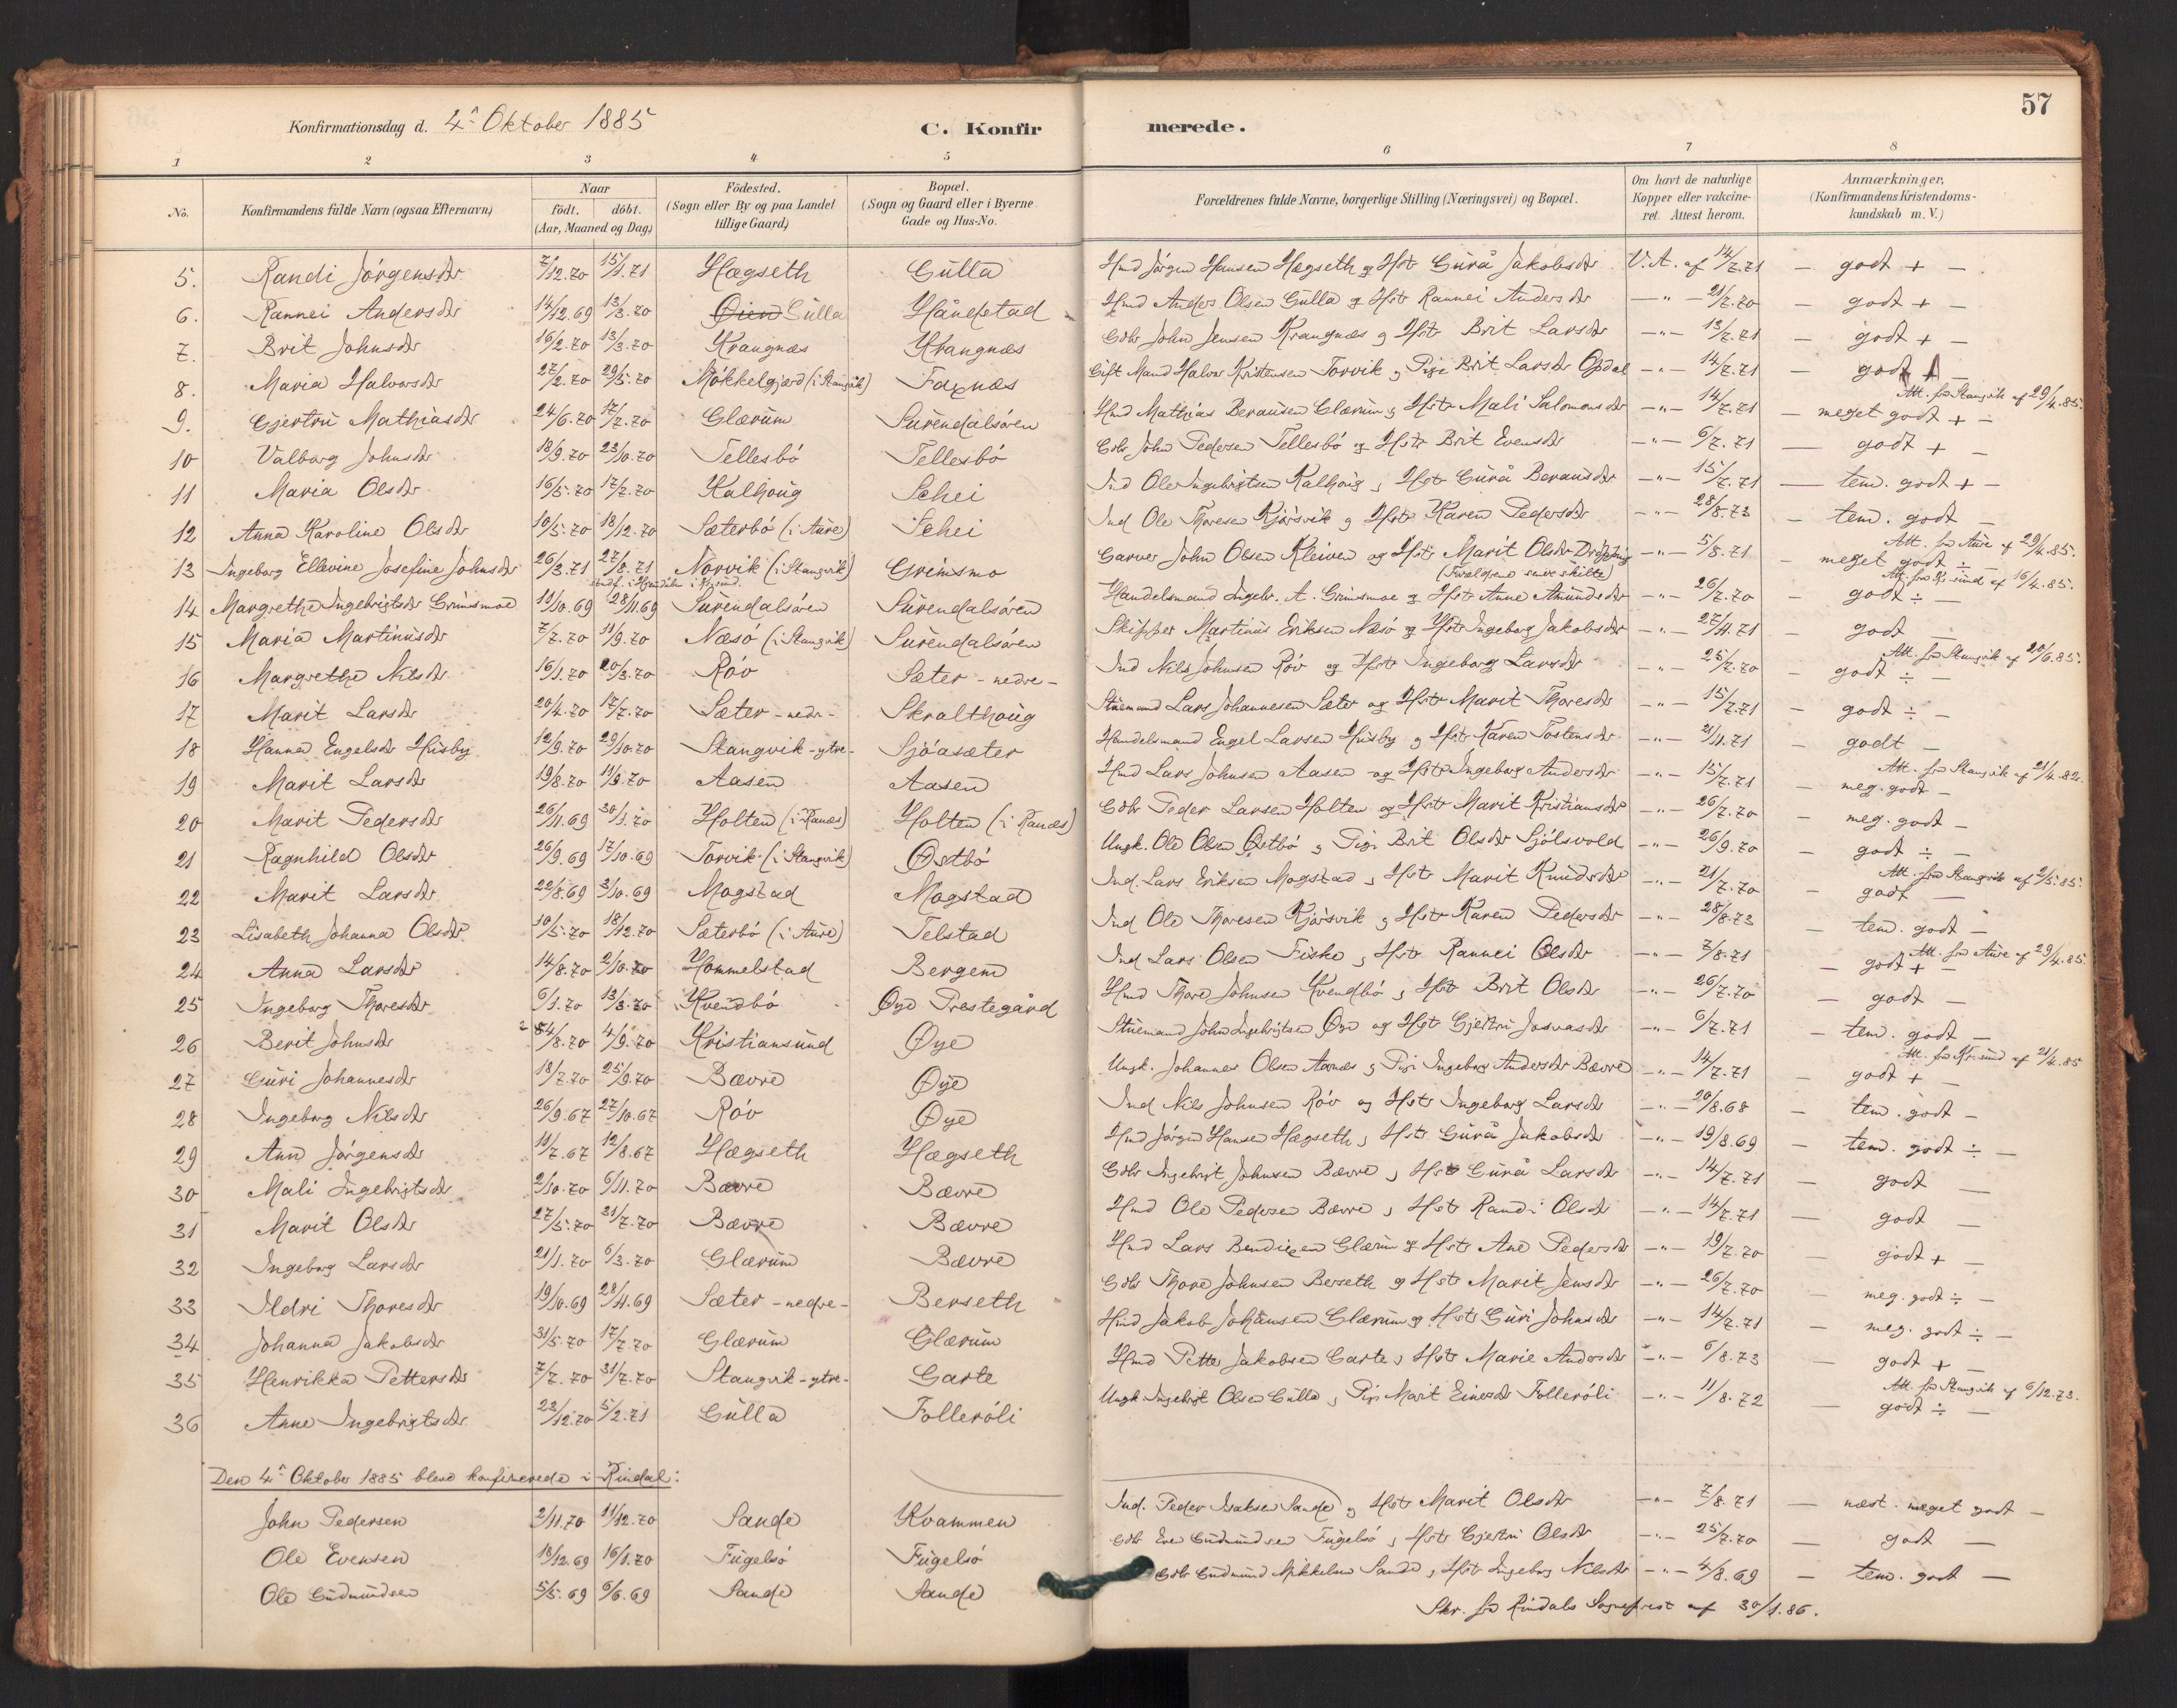 57
Konfirmationsdag d. 4de Oktober 1885 C. Konfir merede.
1 2 3 4 5 6 7 8
No. Konfirmandens fulde Navn (ogsaa Efternavn) Naar födt. döbt. (Aar, Maaned og Dag) Födested. (Sogn eller By og paa Landet tillige Gaard) Bopæl. (Sogn og Gaard eller i Byerne Gade og Hus-No. Forældrenes fulde Navne, borgerlige Stilling (Næringsvei) og Bopæl. Om havt de naturlige Kopper eller vakcineret. Attest herom. Anmærkninger, (Konfirmandens Kristendomskundskab m. V.)
5. Randi Jørgensdr 7/12.70 15/1.71 Hægseth Gulla Gmd Jørgen Hansen Hægseth og Hstr Gurå Jakobsdr V.A. af 14/7.71 – godt + –
6. Rannei Andersdr 14/12.69 13/3.70 Øien Gulla Håndstad Gmd Anders Olsen Gulla og Hstr Rannei Andersdr –"– 21/7.70 – godt + –
7. Brit Johnsdr 16/2.70 13/3.70 Krangnæs Krangnæs Gbr John Jensen Krangnæs og Hstr Brit Larsdr –"– 13/7.71 – godt + –
8. Maria Halvorsdr 27/2.70 29/5.70 Møkkelgjerd (i Stangvik) Faxnæs Gift Mand Halvor Kristensen Torvik og Pige Brit Larsdr Opdal –"– 14/7.71 – godt –
Att. fra Stangvik af 29/4.85.
9. Gjertru Mathiasdr 24/6.70 17/7.70 Glærum Surendalsøren Hmd Mathias Berausen Glærum og Hstr Mali Salomonsdr –"– 14/7.71 – meget godt + –
10 Valborg Johnsdr 18/9.70 23/10.70 Tellesbø Tellesbø Gbr John Pedersen Tellesbø og Hstr Brit Evensdr –"– 6/7.71 – godt + –
11 Maria Olsdr 16/5.70 17/7.70 Kalhoug Schei Ind Ole Ingebrigtsen Kalhoug og Hstr Gurå Berausdr –"– 15/7.71 – tem. godt + –
12 Anna Karoline Olsdr 10/5.70 18/12.70 Sæterbø (i Aure) Schei Ind Ole Thoresen Kjørsvik og Hstr Karen Pedersdr –"– 28/8.73 – tem. godt –
Att. fra Aure af 29/4.85.
13 Ingeborg Ellevine Josefine Johnsdr 26/3.71 27/8.71 Norvik (i Stangvik) Grimsmo Garver John Olsen Kleiven og Hstr Marit Olsdr –"– 5/8.71 meget godt ÷ –
(Forældrene ere skilte) Att. fra Kr.sund af 16/4.85.
14 Margrethe Ingebrigtsdr Grimsmoe 19/10.69 28/11.69 Surendalsøren Surendalsøren Handelsmand Ingebr. A. Grimsmoe og Hstr Anne Amundsdr –"– 26/7.70 – godt ÷ –
15 Maria Martinusdr 7/7.70 11/9.70 Næsø (i Stangvik) Surendalsøren Skipper Martinus Eriksen Næsø og Hstr Ingeborg Jakobsdr –"– 27/4.71 – godt –
Att. fra Stangvik af 20/6.85.
16 Margrethe Nilsdr 16/1.70 20/3.70 Røv Sæter – nedre – Ind Nils Johnsen Røv og Hstr Ingeborg Larsdr –"– 25/7.70 – godt ÷ –
17 Marit Larsdr 20/4.70 17/7.70 Sæter – nedr – Skralthoug Stuemand Lars Johannesen Sæter og Hstr Marit Thoresdr –"– 15/7.71 – godt ÷ –
18 Hanna Engelsdr Husby 12/9.70 29/10.70 Stangvik – ytre – Sjøasæter Handelsmand Engel Larsen Husby og Hstr Karen Tostensdr –"– 21/11.71 – godt –
Att. fra Stangvik af 21/4.82.
19 Marit Larsdr 19/8.70 11/9.70 Aasen Aasen Hmd Lars Johnsen Aasen og Hstr Ingeborg Andersdr –"– 15/7.71 – meg. godt –
20 Marit Pedersdr 26/11.69 30/1.70 Holten (i Ranæs) Holten (i Ranæs) Gbr Peder Larsen Holten og Hstr Marit Kristiansdr –"– 26/7.70 – meg. godt –
21 Ragnhild Olsdr 26/9.69 17/10.69 Torvik (i Stangvik) Østbø Ungk. Ole Olsen Østbø og Pige Brit Olsdr Sjølsvold –"– 26/9.70 – godt ÷ –
Att. fra Stangvik af 2/5.85.
22 Marit Larsdr 22/8.69 3/10.69 Mogstad Mogstad Ind. Lars Eriksen Mogstad og Hstr Marit Knudsdr –"– 21/7.70 – godt –
23 Lisabeth Johanna Olsdr 10/5.70 18/12.70 Sæterbø (i Aure) Telstad Ind Ole Thoresen Kjørsvik og Hstr Karen Pedersdr –"– 28/8.73 – tem. godt –
Att. fra Aure af 29/4.85.
24 Anna Larsdr 14/8.70 2/10.70 Hommelstad Bergem Ind Lars Olsen Fiske og Hstr Rannei Olsdr –"– 7/8.71 – godt + –
25 Ingeborg Thoresdr 6/1.70 13/3.70 Kvendbø Øye Prestegård Hmd Thore Johnsen Kvendbø og Hstr Brit Olsdr –"– 26/7.70 – godt –
26 Berit Johnsdr 4/8.70 4/9.70 Kristiansund Øye Stuemand John Ingebrigtsen Øye og Hstr Gjertru Josvasdr –"– 6/7.71 – tem. godt –
Att. fra Kr.sund af 21/4.85
27 Guri Johannesdr 18/7.70 25/9.70 Bævre Øye Ungk. Johannes Olsen Aarnes og Pige Ingeborg Andersdr Bævre –"– 14/7.71 – godt + –
28 Ingeborg Nilsdr 26/9.67 27/10.67 Røv Øye Ind Nils Johnsen Røv og Hstr Ingeborg Larsdr –"– 20/8.68 – tem. godt –
29 Ane Jørgensdr 11/7.67 12/8.67 Hægseth Hægseth Gmd Jørgen Hansen Hægseth og Hstr Gurå Jakobsdr –"– 19/8.69 – tem. godt ÷ –
30 Mali Ingebrigtsdr 2/10.70 6/11.70 Bævre Bævre Gbr Ingebrigt Johnsen Bævre og Hstr Gurå Larsdr –"– 14/7.71 – godt –
31 Marit Olsdr 27/5.70 31/7.70 Bævre Bævre Hmd Ole Pedersen Bævre og Hstr Randi Olsdr –"– 14/7.71 – godt –
32 Ingeborg Larsdr 21/1.70 6/3.70 Glærum Bævre Hmd Lars Bendixen Glærum og Hstr Ane Pedersdr –"– 19/7.70 – godt + –
33 Ildri Thoresdr 19/10.69 28/11.69 Sæter – nedre – Berseth Gbr Thore Johnsen Berseth og Hstr Marit Jensdr –"– 26/7.70 – meg. godt ÷ –
34 Johanna Jakobsdr 31/5.70 17/7.70 Glærum Glærum Hmd Jakob Johansen Glærum og Hstr Guri Johnsdr –"– 14/7.71 – meg. godt ÷ –
35 Henrikka Pettersdr 7/7.70 31/7.70 Stangvik – ytre – Garte Hmd Petter Jakobsen Garte og Hstr Marie Andersdr –"– 6/8.73 – godt + –
Att. fra Stangvik af 6/12.73.
36 Anne Ingebrigtsdr 23/12.70 5/2.71 Gulla Follerøli Ungk Ingebrigt Olsen Gulla og Pige Marit Einersdr Follerøli –"– 11/8.72 – godt ÷ –
Den 4de Oktober 1885 bleve konfirmerede i Rindal:
John Pedersen 2/11.70 11/12.70 Sande Kvammen Ind. Peder Isaksen Sande og Hstr Marit Olsdr –"– 7/8.71 – næst. meget godt –
Ole Evensen 18/12.69 16/1.70 Fugelsø Fugelsø Gbr Even Gudmundsen Fugelsø og Hstr Gjertru Olsdr –"– 25/7.70 – godt –
Ole Gudmundsen 5/5.69 6/6.69 Sande Sande Gbr Gudmund Mikkelsen Sande og Hstr Ingeborg Nilsdr –"– 4/8.69 – tem. godt –
Skr. fra Rindals Sogneprest af 30/1.86.